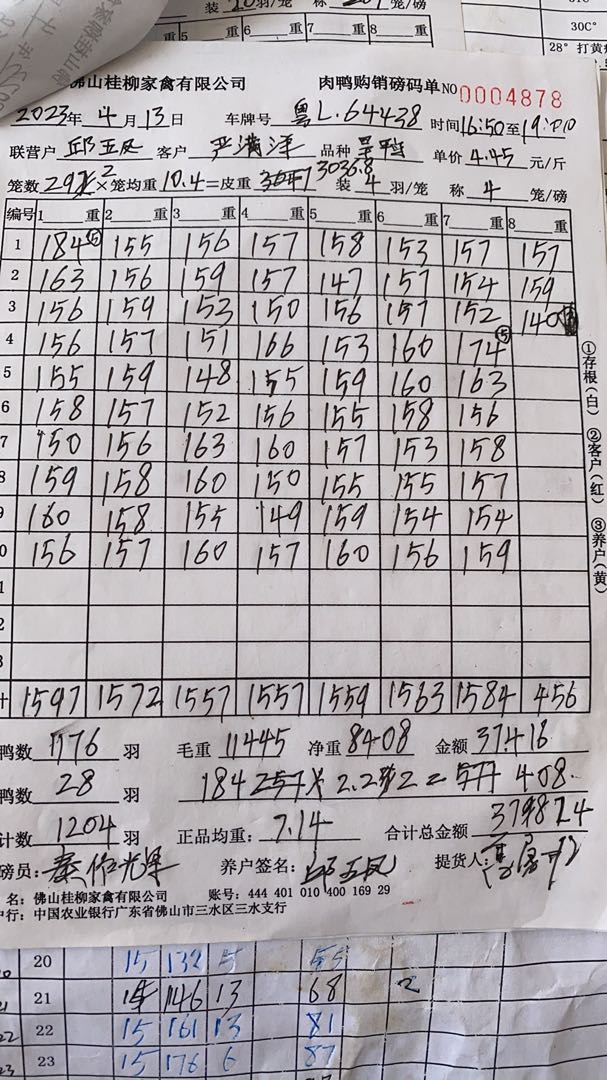 装 10 羽/笼 称
笼/磅
重 5 重 6 重 7 重 8 重
30C°
28° 打黄
佛山桂柳家禽有限公司 肉鸭购销磅码单 NO 0004878
2023年 4月 13日 车牌号 粤L.64438 时间16:50至19:00
联营户 邱五凤 客户 严满洋 品种 单价 4.45 元/斤
笼数 292×笼均重 10.4=皮重 3036.8 装 4 羽/笼 称 4 笼/磅
编号 1 重 2 重 3 重 4 重 5 重 6 重 7 重 8 重
1 184⑤ 155 156 157 158 153 157 157
2 163 156 159 157 147 157 154 159
3 156 159 153 150 156 157 152 140
4 156 157 151 166 153 160 174⑤
5 155 159 148 155 159 160 163
6 158 157 152 156 155 158 156
7 150 156 163 160 157 153 158
8 159 158 160 150 155 155 157
9 160 158 155 149 159 154 154
0 156 157 160 157 160 156 159
1
2
3
1597 1572 1557 1557 1559 1563 1584 456
鸭数 1176 羽 毛重 11445 净重 8408 金额 37416
鸭数 28 羽 184 × 2.2 = 408.
计数 1204 羽 正品均重: 7.14 合计总金额 37824
磅员: 养户签名: 邱五凤 提货人:
名: 佛山桂柳家禽有限公司 账号: 444 401 010 400 169 29
户行: 中国农业银行广东省佛山市三水区三水支行
①存根(白) ②客户(红) ③养户(黄)
20 15 132 5 55
21 15 146 13 68 2
22 15 161 13 81
23 15 176 6 87